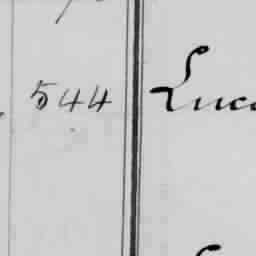 544 Luc